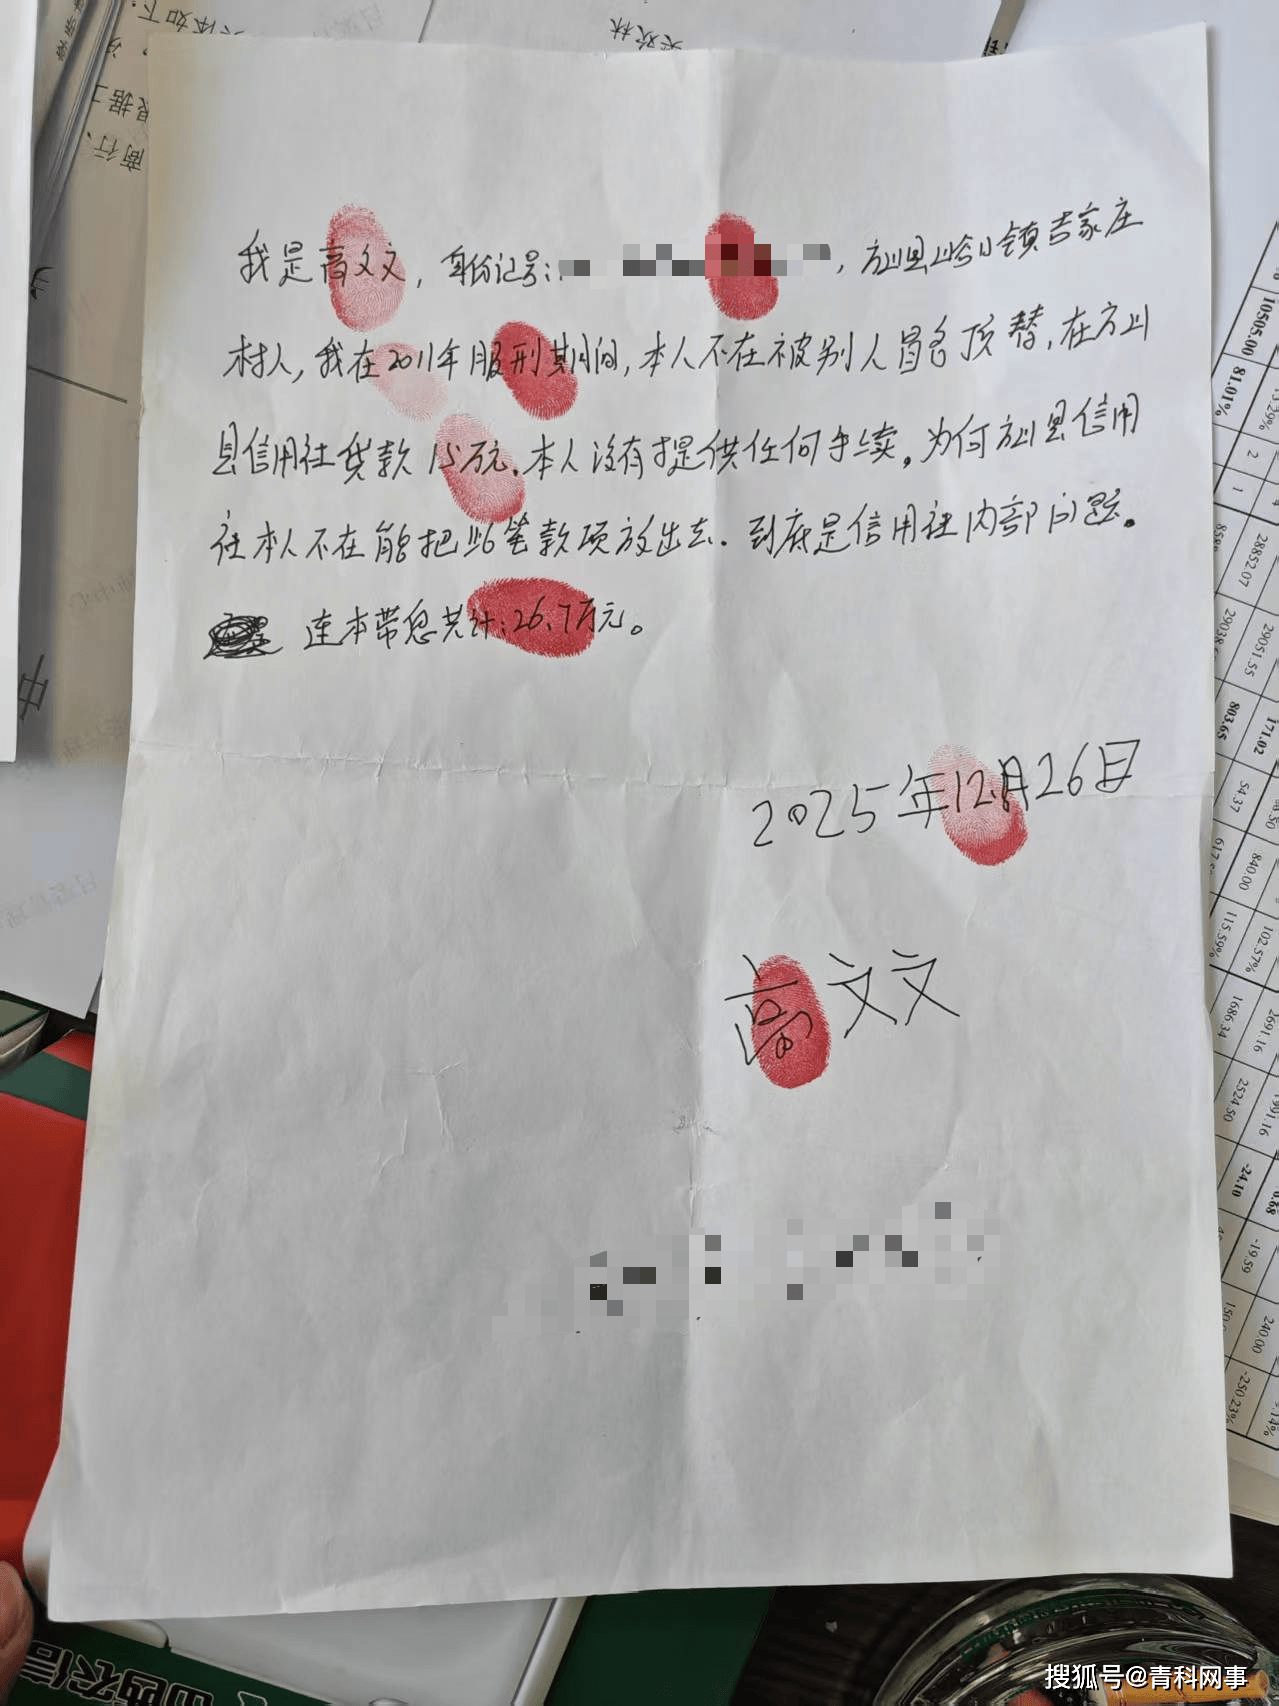 我是高文文，身份记号：，方山县峪口镇吉家庄
村人，我在2011年服刑期间，本人不在被别人冒名顶替，在方山
县信用社贷款15万元，本人没有提供任何手续。为何方山县信用
社本人不在能把此笔款项放出去．到底是信用社内部问题。
连本带息共计：26.7万元。
2025年12月26日
高文文
体如下：
根据
商行、
10505.00
81.01%
2
1
28852.07
29051.55
803.65
171.02
54.37
840.00
115.59%
102.57%
1686.34
2691.16
2524.50
-24.10
-19.59
240.00
-250.23%
搜狐号@青科网事